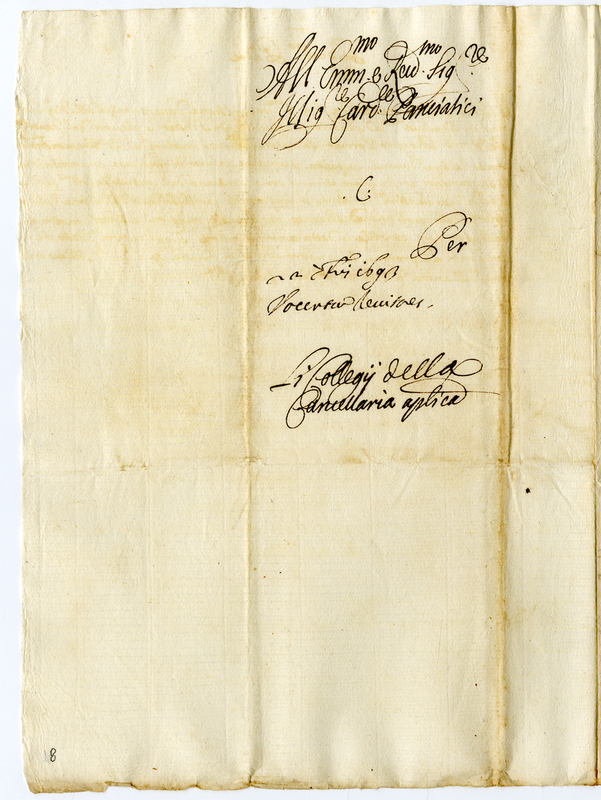 All Emm.mo e Reu.mo Sig.re
Il Sig.re Card.le Panciatici
C.
Per
22 Xbri 1693
Li Collegij della
Cancellaria aplica
8